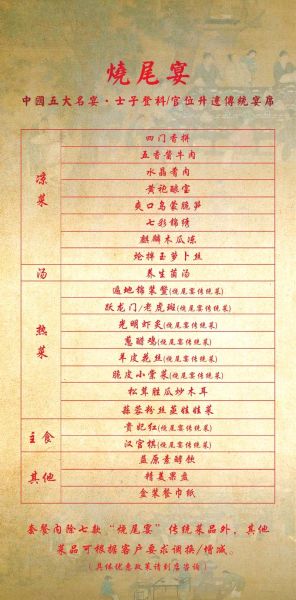 燒尾宴
中國五大名宴·士子登科/官位升遷傳統宴席
凉菜
四门香拼
五香酱牛肉
水晶肴肉
黄袍酿宝
爽口乌蒙脆笋
七彩锦绣
麒麟木瓜冻
炝拌玉萝卜丝
汤
养生菌汤
热菜
遍地锦装鳖(烧尾宴传统菜)
跃龙门/老虎斑(烧尾宴传统菜)
光明虾炙(烧尾宴传统菜)
葱醋鸡(烧尾宴传统菜)
羊皮花丝(烧尾宴传统菜)
脆皮小棠菜(烧尾宴传统菜)
松茸胜瓜炒木耳
蒜蓉粉丝蒸娃娃菜
主食
贵妃红(烧尾宴传统菜)
汉宫棋(烧尾宴传统菜)
其他
益原素酵饮
精美果盘
盒装餐巾纸
套餐内除七款“烧尾宴”传统菜品外,其他
菜品可根据客户要求调换/增减。
(具体优惠政策请到店咨询)